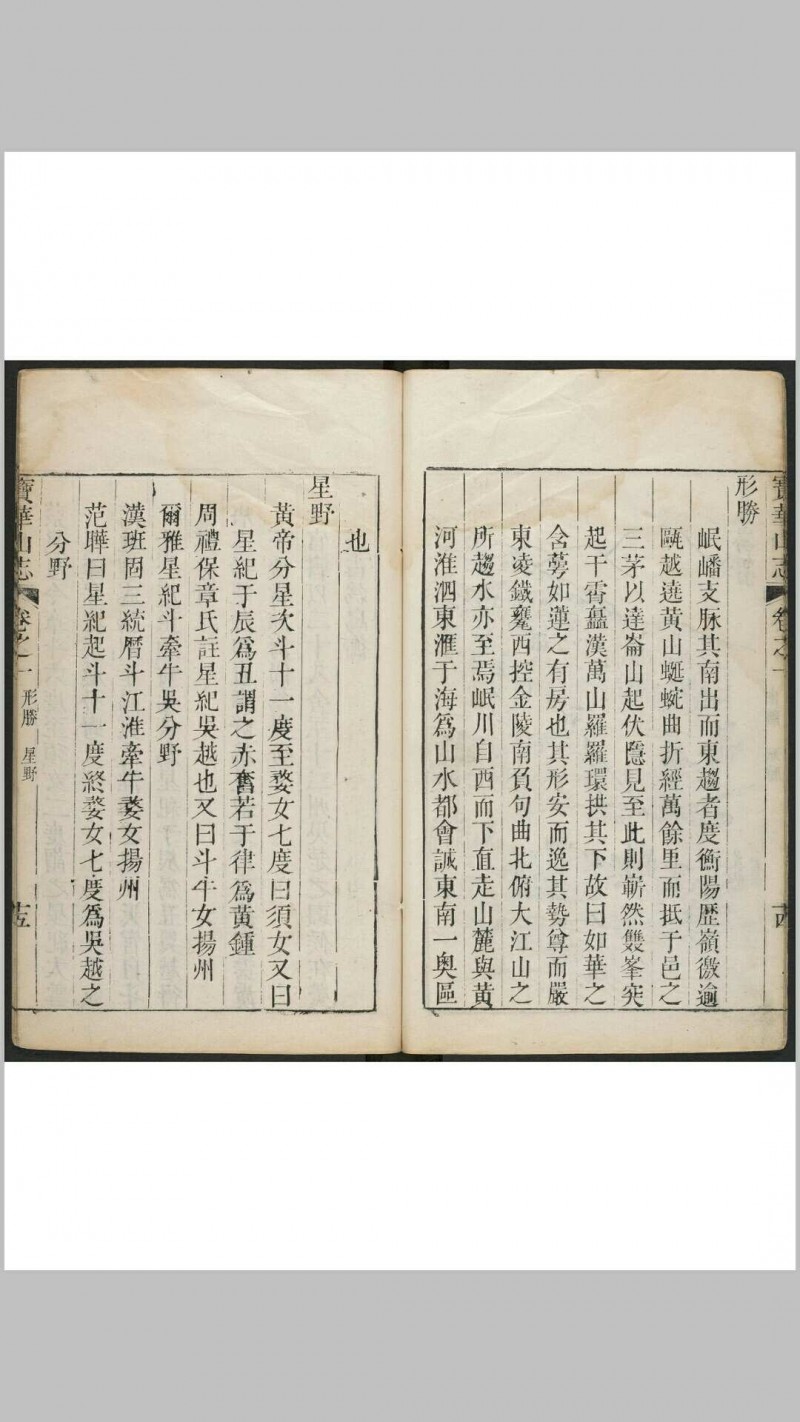 寶華山志 卷之一
形勝
岷嶓支脉其南出而東趨者度衡陽歷嶺徼逾
甌越遶黃山蜒蜿曲折經萬餘里而抵于邑之
三茅以達崙山起伏隱見至此則嶄然雙峯突
起干霄矗漢萬山羅羅環拱其下故曰如華之
含蕚如蓮之有房也其形安而逸其勢尊而嚴
東凌鐵甕西控金陵南負句曲北俯大江山之
所趨水亦至焉岷川自西而下直走山麓與黃
河淮泗東滙于海爲山水都會誠東南一奧區
也
星野
黃帝分星次斗十一度至婺女七度曰須女又曰
星紀于辰爲丑謂之赤奮若于律爲黃鍾
周禮保章氏註星紀吳越也又曰斗牛女揚州
爾雅星紀斗牽牛吳分野
漢班固三統曆斗江淮牽牛婺女揚州
范曄曰星紀起斗十一度終婺女七度爲吳越之
分野
寶華山志 卷之一 形勝 星野